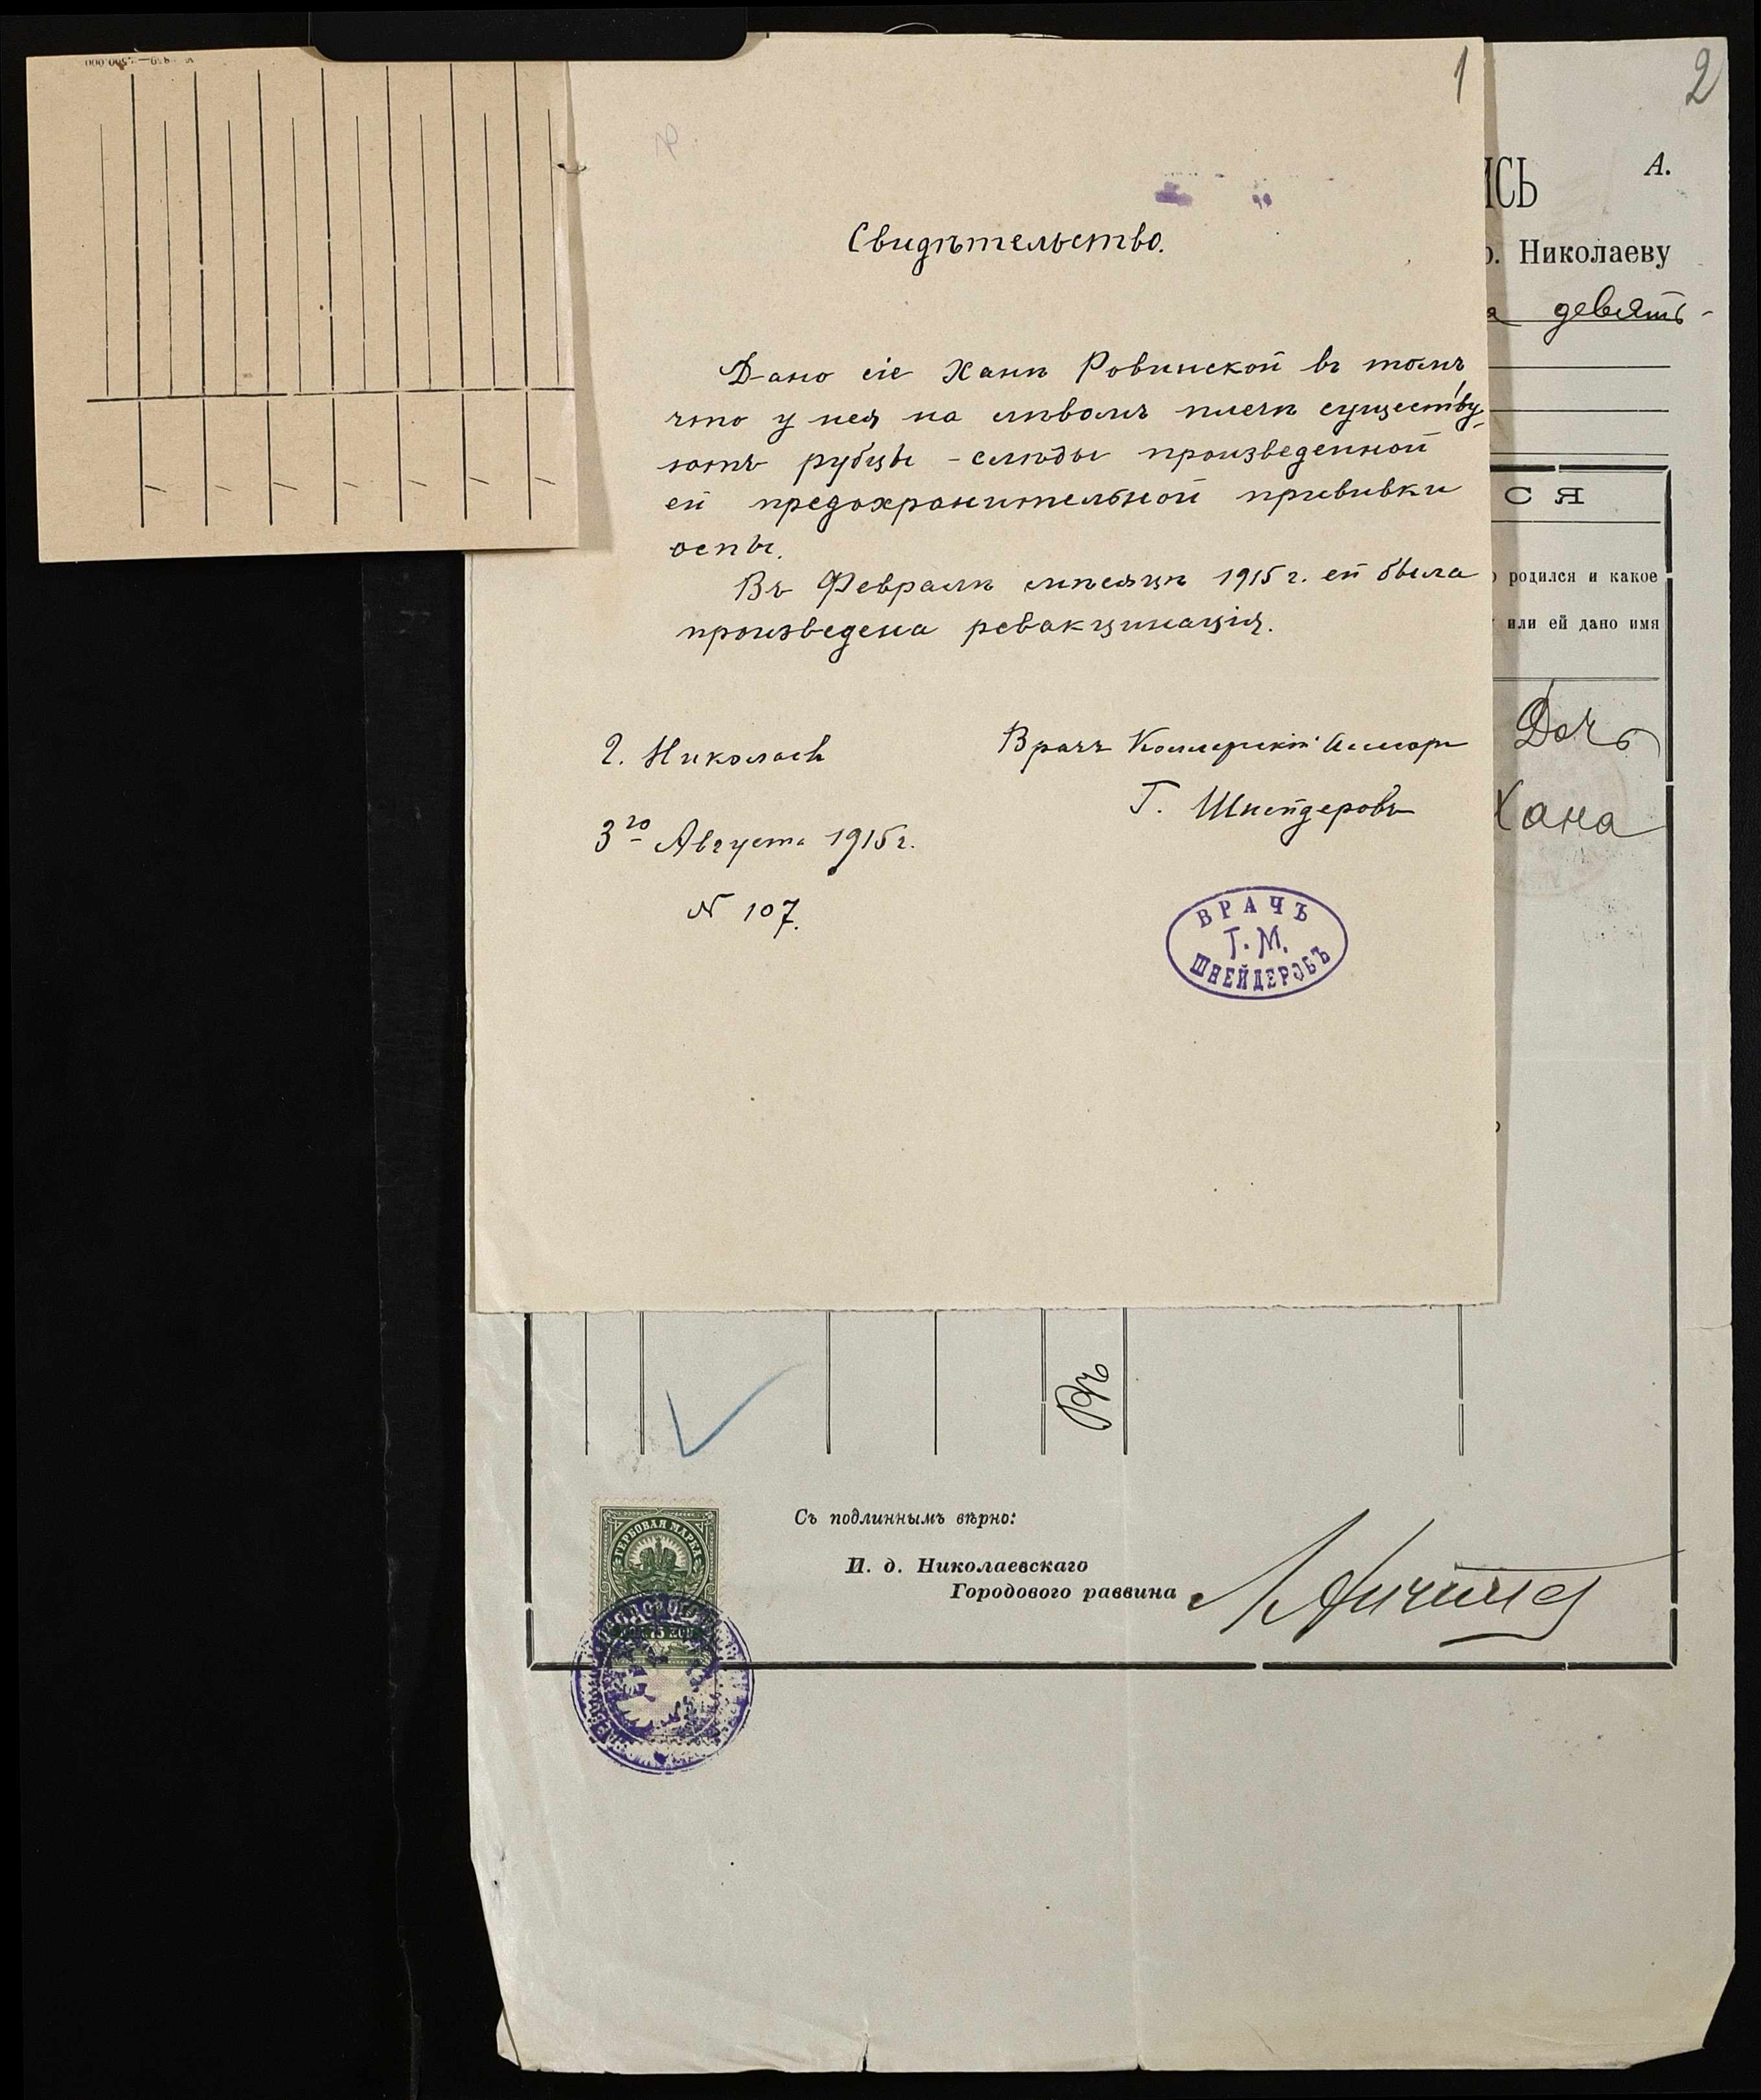 1
Свидѣтельство.
Дано сіе Ханѣ Ровинской въ томъ
что у нея на лѣвомъ плечѣ существу-
ютъ рубцы - слѣды произведенной
ей предохранительной прививки
оспы.
Въ Февралѣ мѣсяцѣ 1915 г. ей была
произведена ревакцинація.
Г. Николаевъ
3го Августа 1915 г.
N 107.
Врачъ
Г. Шнейдеровъ
ВРАЧЪ
Г. М.
ШНЕЙДЕРОВЪ
2
ИСЬ
А.
Николаеву
девять-
СЯ
родился и какое
или ей дано имя
Дочь
Хана
ГЕРБОВАЯ МАРКА
75 КОП
Съ подлиннымъ вѣрно:
И. д. Николаевскаго
Городового раввина